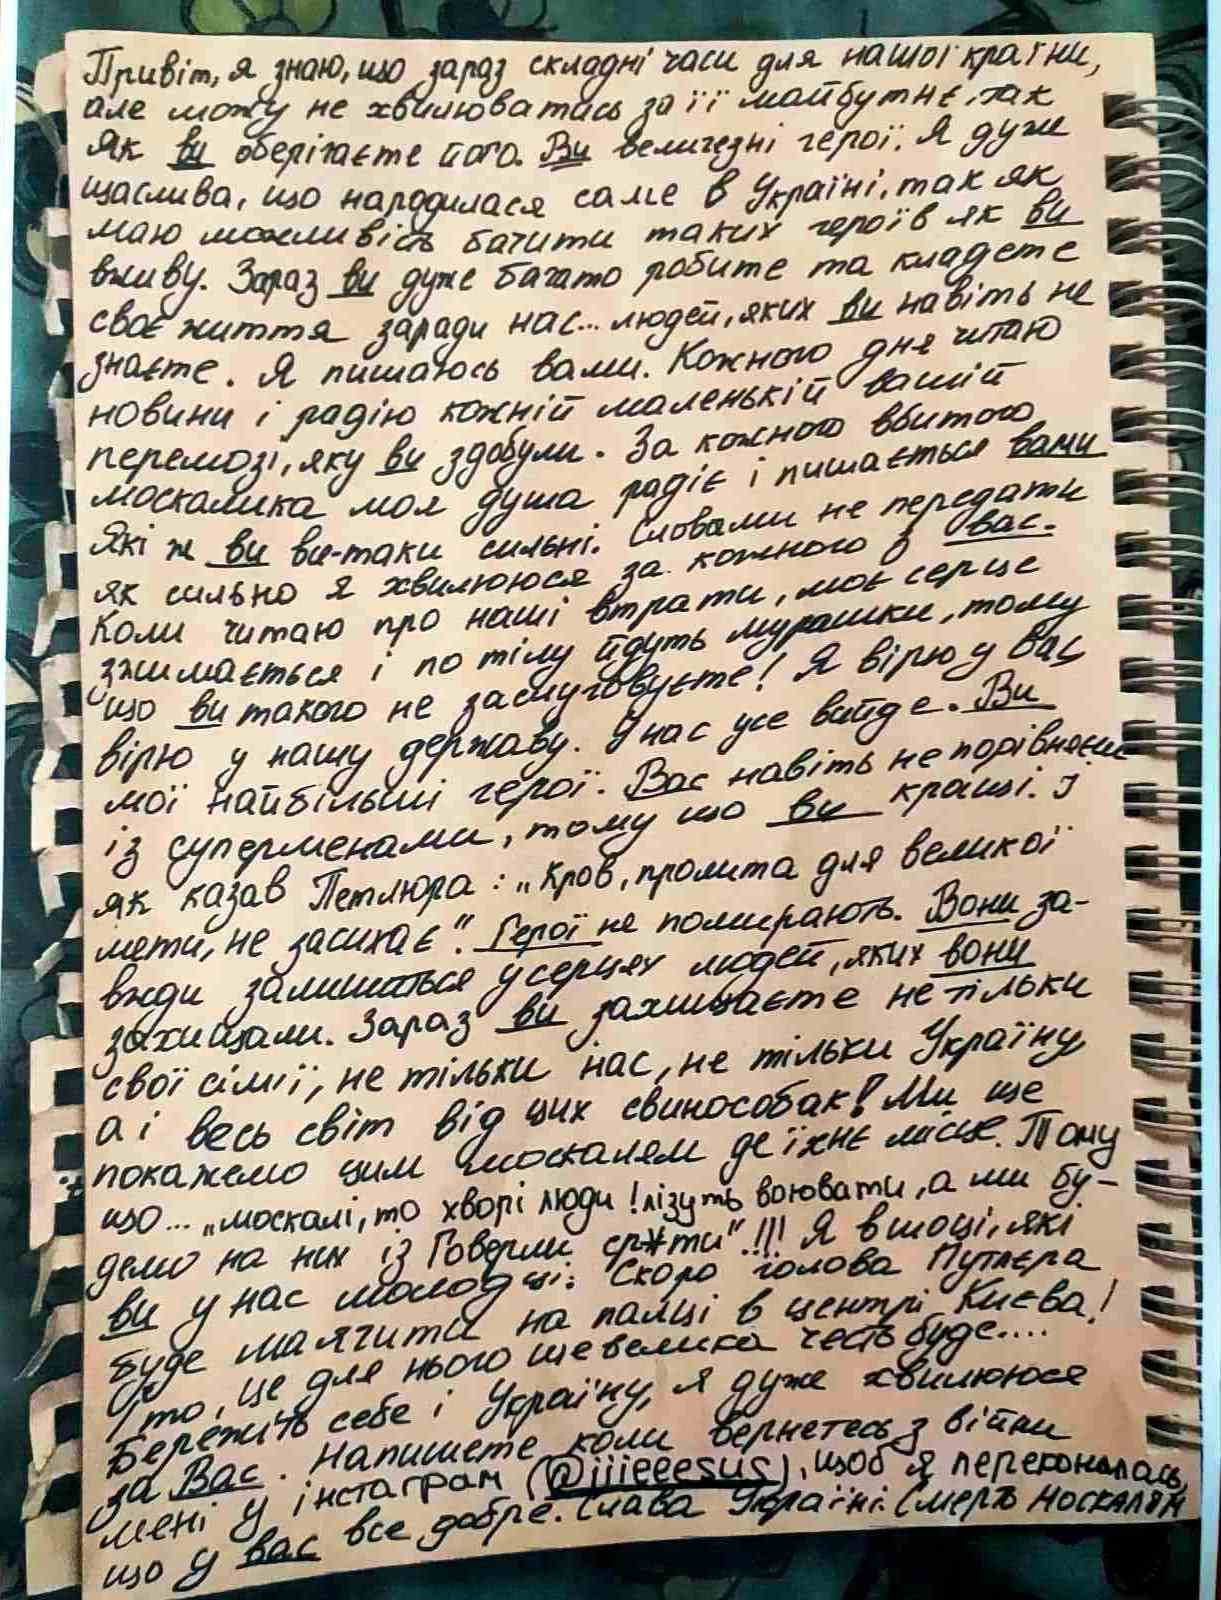 Привіт, я знаю, що зараз складні часи для нашої країни,
але можу не хвилюватись за її майбутнє, так
як ви оберігаєте його. Ви величезні герої. Я дуже
щаслива, що народилася саме в Україні, так як
маю можливість бачити таких героїв як ви
вживу. Зараз ви дуже багато робите та кладете
своє життя заради нас... людей, яких ви навіть не
знаєте. Я пишаюсь вами. Кожного дня читаю
новини і радію кожній маленькій вашій
перемозі, яку ви здобули. За кожного вбитого
москалика моя душа радіє і пишається вами
Які ж ви ви-таки сильні. Словами не передати
як сильно я хвилююся за кожного з вас.
Коли читаю про наші втрати, моє серце
зжимається і по тілу йдуть мурашки, тому
що ви такого не заслуговуєте! Я вірю у вас,
вірю у нашу державу. У нас усе вийде. Ви
мої найбільші герої. Вас навіть не порівняєш
із суперменами, тому що ви кращі. І
як казав Петлюра: „Кров, пролита для великої
мети, не засихає". Герої не помирають. Вони за-
вжди залишаться у серцях людей, яких вони
захищали. Зараз ви захищаєте не тільки
свої сімії, не тільки нас, не тільки Україну,
а і весь світ від цих свинособак! Ми ще
покажемо цим москалям де їхнє місце. Тому
що... „москалі, то хворі люди! лізуть воювати, а ми бу-
демо на них із Говерли ср*ти"!!! Я в шоці, які
ви у нас молодці. Скоро голова Путлєра
буде маячити на палці в центрі Києва!
І то, це для нього ще велика честь буде....
Бережіть себе і Україну, я дуже хвилююся
за Вас. Напишете коли вернетесь з війни
мені у інстаграм (@jjjeeesus), щоб я переконалась,
що у вас все добре. Слава Україні. Смерть москалям